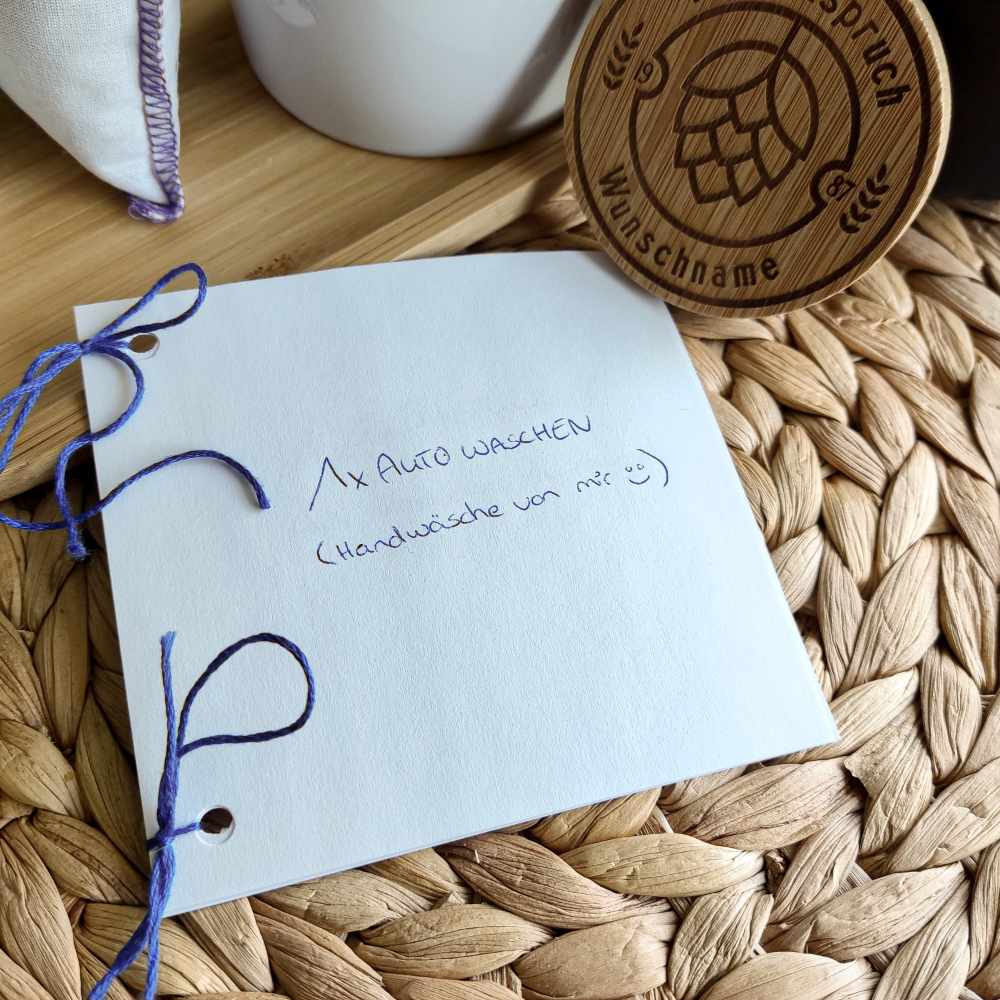 spruch
19
87
Wunschname
1x AUTO WASCHEN
(Handwäsche von mir ☺)